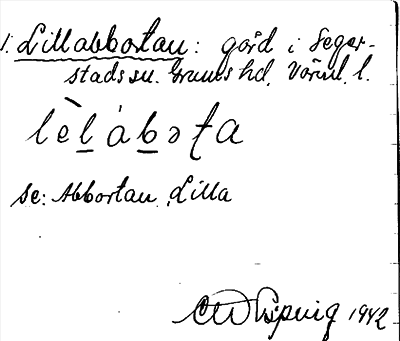 1. Lillabbortan: gård i Seger-
stads sn. Grums hd. Värml. l.
lè̱làḇəʈa
se: Abbortan, Lilla
1942